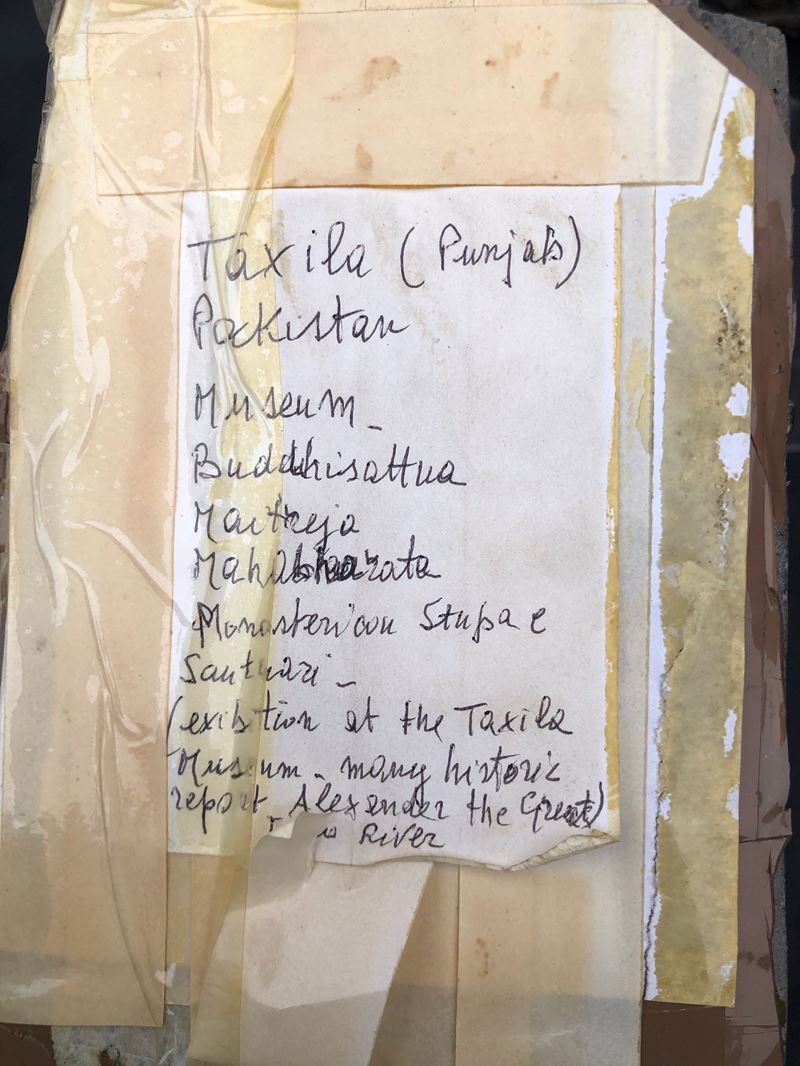 Taxila (Punjab)
Packistan
Museum_
Buddhisattua
Maitreja
Mahabharata
Monasterican Stupa e
Santuari_
(exibtion at the Taxila
Museum_ many historic
report_ Alexander the Great)
River